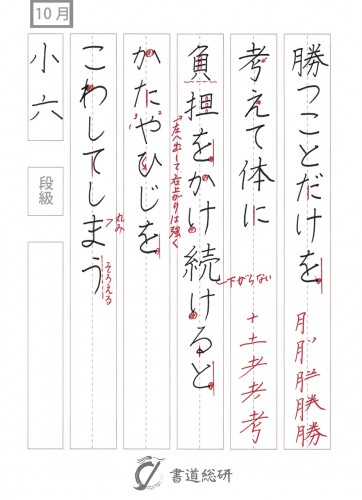 10月
勝つことだけを
月 月 胖 朕 勝
考えて体に
十 土 耂 考 考
負担をかけ続けると
左へ出して右上がりは強く
下がらない
かたやひじを
1 2 3
こわしてしまう
丸み
そろえる
小六
段級
書道総研